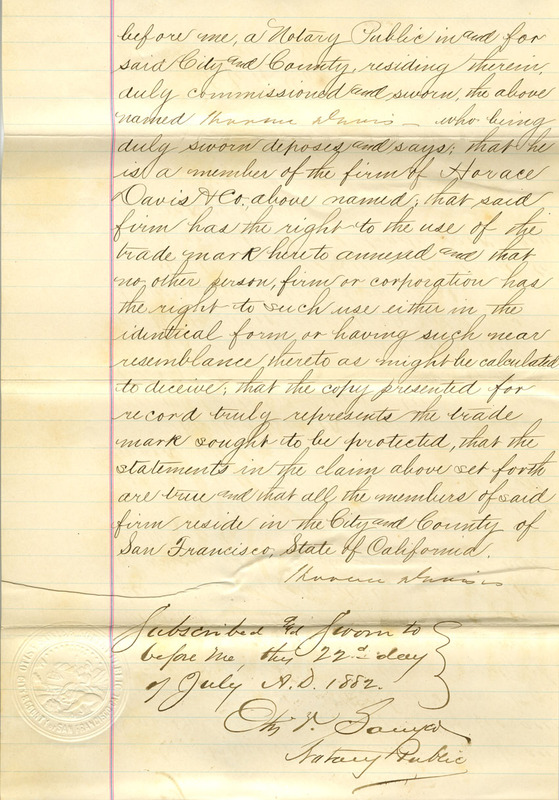 before me, a Notary Public in and for
said City and County, residing therein,
duly commissioned and sworn, the above
named Horace Davis — who being
duly sworn deposes and says; that he
is a member of the firm of Horace
Davis & Co., above named; that said
firm has the right to the use of the
trade mark hereto annexed and that
no other person, firm or corporation has
the right to such use either in the
identical form, or having such near
resemblance thereto as might be calculated
to deceive; that the copy presented for
record truly represents the trade
mark sought to be protected, that the
statements in the claim above set forth
are true and that all the members of said
firm reside in the City and County of
San Francisco, State of California.
Horace Davis
Subscribed and Sworn to
before me, this 22nd day
of July A.D. 1882.
Notary Public